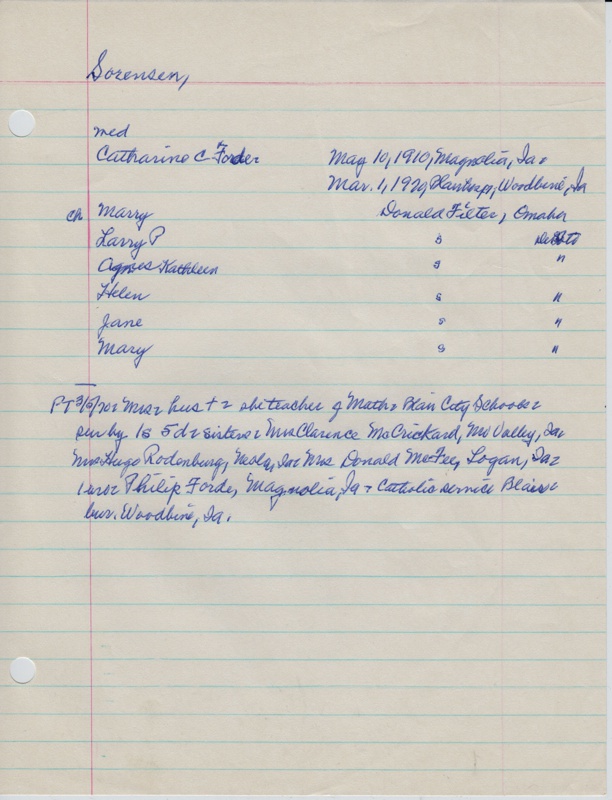 Sorensen,
med
Catharine C Forde May 10, 1910, Magnolia, Ia.
Mar. 1, 1970, Woodbine, Ia
ch Marry Donald Filter, Omaha
Larry P s
Agnes Kathleen s "
Helen s "
Jane s "
Mary s "
PT 3/5/70: Mrs: hus + : she teacher of Math: Blair City Schools:
sur by 1s 5d: sisters: Mrs Clarence McCrickard, Mo Valley, Ia:
Mrs Hugo Rodenburg, Neola, Ia: Mrs Donald McFee, Logan, Ia:
1 bro: Philip Forde, Magnolia, Ia: Catholic service Blair:
bur. Woodbine, Ia.